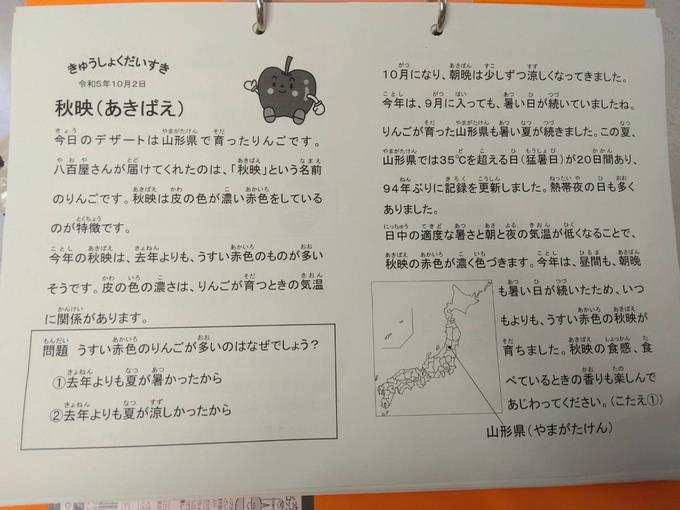 きゅうしょくだいすき
令和5年10月2日
秋映(あきばえ)
今日のデザートは山形県で育ったりんごです。
八百屋さんが届けてくれたのは、「秋映」という名前
のりんごです。秋映は皮の色が濃い赤色をしている
のが特徴です。
今年の秋映は、去年よりも、うすい赤色のものが多い
そうです。皮の色の濃さは、りんごが育つときの気温
に関係があります。
問題 うすい赤色のりんごが多いのはなぜでしょう?
①去年よりも夏が暑かったから
②去年よりも夏が涼しかったから
10月になり、朝晩は少しずつ涼しくなってきました。
今年は、9月に入っても、暑い日が続いていましたね。
りんごが育った山形県も暑い夏が続きました。この夏、
山形県では35℃を超える日(猛暑日)が20日間あり、
94年ぶりに記録を更新しました。熱帯夜の日も多く
ありました。
日中の適度な暑さと朝と夜の気温が低くなることで、
秋映の赤色が濃く色づきます。今年は、昼間も、朝晩
も暑い日が続いたため、いつ
もよりも、うすい赤色の秋映が
育ちました。秋映の食感、食
べているときの香りも楽しんで
あじわってください。(こたえ①)
山形県(やまがたけん)